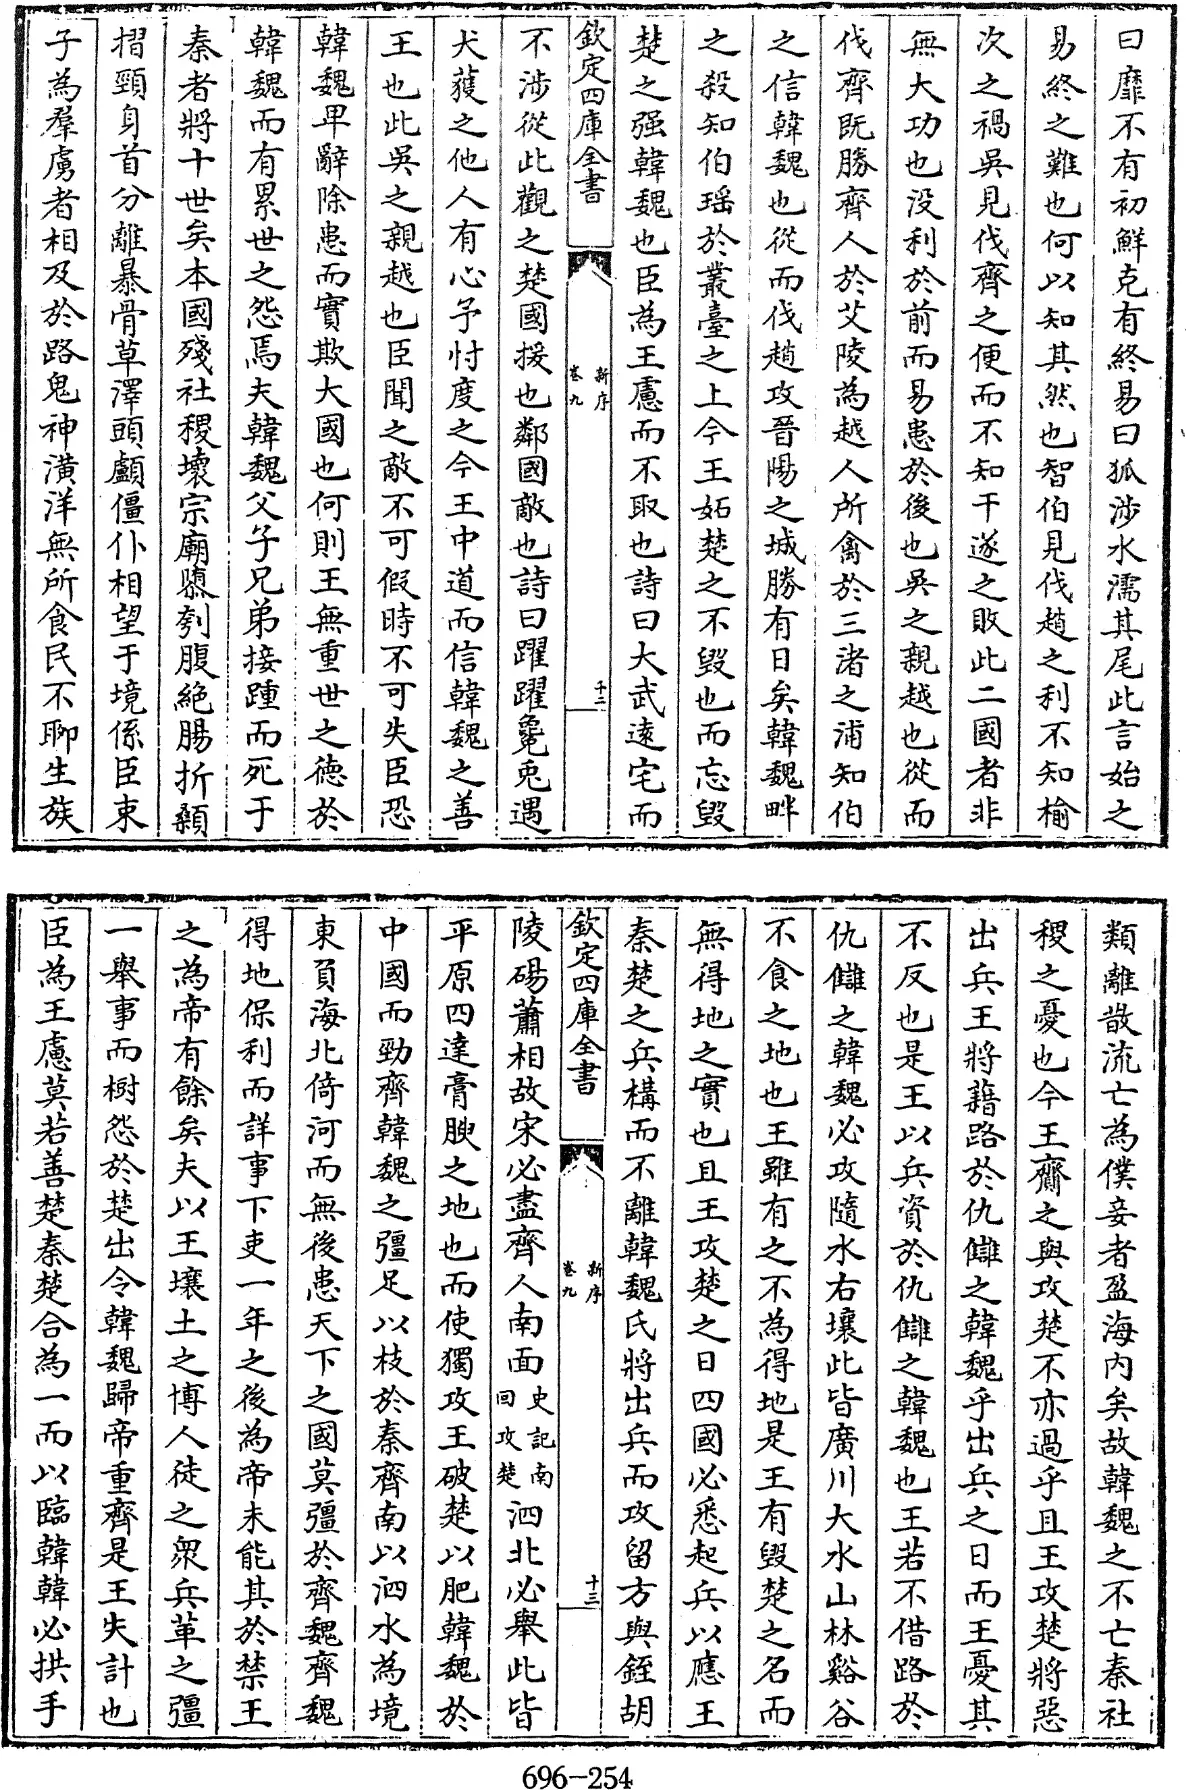 曰靡不有初鮮克有終易曰狐涉水濡其尾此言始之
易終之難也何以知其然也智伯見伐趙之利不知榆
次之禍吳見伐齊之便而不知干遂之敗此二國者非
無大功也没利於前而易患於後也吳之親越也從而
伐齊既勝齊人於艾陵為越人所禽於三渚之浦知伯
之信韓魏也從而伐趙攻晉陽之城勝有日矣韓魏畔
之殺知伯瑶於叢臺之上今王妬楚之不毀也而忘毀
楚之强韓魏也臣為王慮而不取也詩曰大武逺宅而
欽定四庫全書
新序
卷九
十二
不涉從此觀之楚國援也鄰國敵也詩曰躍躍毚兎遇
犬獲之他人有心予忖度之今王中道而信韓魏之善
王也此吳之親越也臣聞之敵不可假時不可失臣恐
韓魏卑辭除患而實欺大國也何則王無重世之德於
韓魏而有累世之怨焉夫韓魏父子兄弟接踵而死于
秦者將十世矣本國殘社稷壞宗廟隳刳腹絶腸折顙
摺頸身首分離暴骨草澤頭顱僵仆相望于境係臣束
子為羣虜者相及於路鬼神潢洋無所食民不聊生族
類離散流亡為僕妾者盈海内矣故韓魏之不亡秦社
稷之憂也今王齎之與攻楚不亦過乎且王攻楚將惡
出兵王將藉路於仇讎之韓魏乎出兵之日而王憂其
不反也是王以兵資於仇讎之韓魏也王若不借路於
仇讎之韓魏必攻隨水右壤此皆廣川大水山林谿谷
不食之地也王雖有之不為得地是王有毀楚之名而
無得地之實也且王攻楚之日四國必悉起兵以應王
秦楚之兵構而不離韓魏氏將出兵而攻留方與銍胡
欽定四庫全書
新序
卷九
十三
陵碭蕭相故宋必盡齊人南面史記南面攻楚泗北必舉此皆
平原四達膏腴之地也而使獨攻王破楚以肥韓魏於
中國而勁齊韓魏之彊足以枝於秦齊南以泗水為境
東負海北倚河而無後患天下之國莫彊於齊魏齊魏
得地保利而詳事下吏一年之後為帝未能其於禁王
之為帝有餘矣夫以王壤土之博人徒之衆兵革之彊
一舉事而樹怨於楚出令韓魏歸帝重齊是王失計也
臣為王慮莫若善楚秦楚合為一而以臨韓韓必拱手
696-254